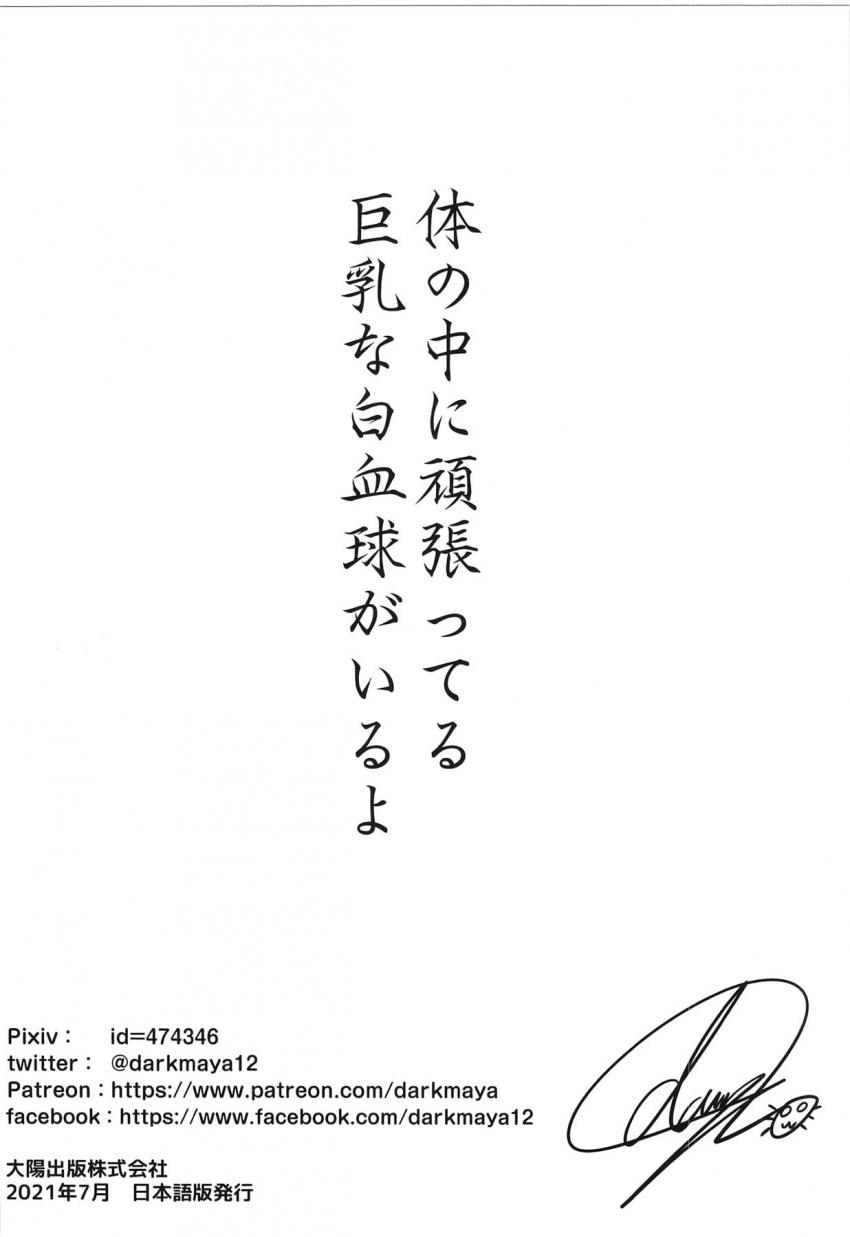 体の中に頑張ってる
巨乳な白血球がいるよ
Pixiv： id=474346
twitter： @darkmaya12
Patreon：https://www.patreon.com/darkmaya
facebook：https://www.facebook.com/darkmaya12
大陽出版株式会社
2021年7月 日本語版発行